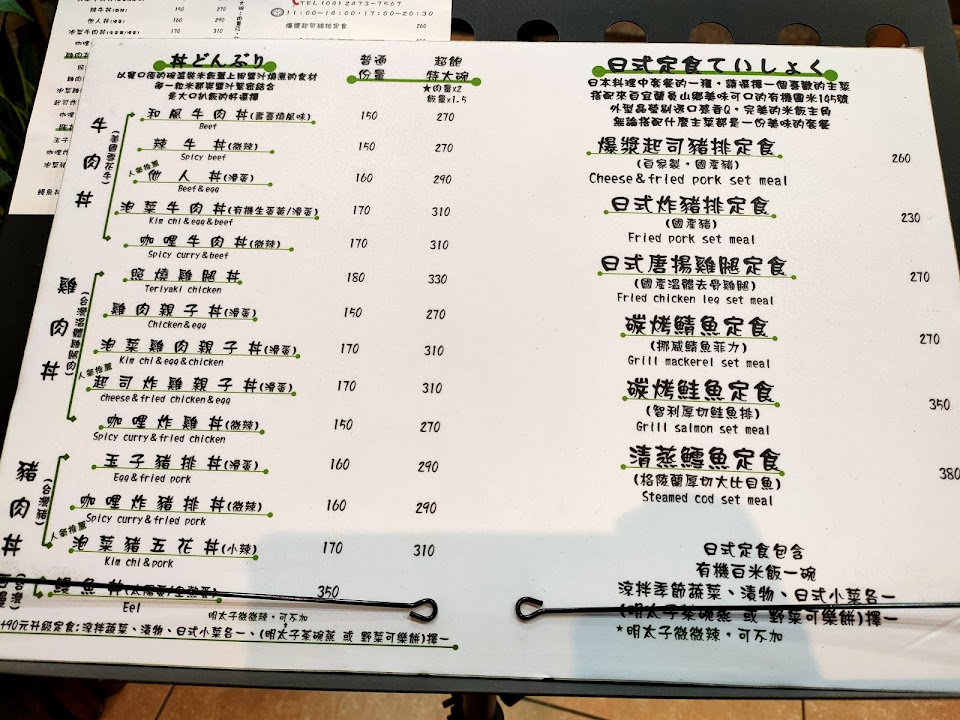 TEL(04)2473-7567
11:00~14:00,17:00~20:30
爆漿起司豬排定食 260
丼どんぶり
普通份量
超飽特大碗
★肉量x2
飯量x1.5
以寬口徑的碗盛裝米飯蓋上甜醬汁燒煮的食材
每一粒米都與醬汁緊密結合
是大口扒飯的好選擇
牛肉丼
(美國雪花牛)
和風牛肉丼(壽喜燒風味) 150 270
Beef
辣牛丼(微辣) 150 270
Spicy beef
人氣推薦
他人丼(滑蛋) 160 290
Beef&egg
泡菜牛肉丼(有機生蛋黃/滑蛋) 170 310
Kim chi&egg&beef
咖哩牛肉丼(微辣) 170 310
Spicy curry&beef
雞肉丼
(台灣溫體雞腿肉)
照燒雞腿丼 180 330
Teriyaki chicken
雞肉親子丼(滑蛋) 150 270
Chicken&egg
泡菜雞肉親子丼(滑蛋) 170 310
Kim chi&egg&chicken
人氣推薦
起司炸雞親子丼(滑蛋) 170 310
Cheese&fried chicken&egg
咖哩炸雞丼(微辣) 150 270
Spicy curry&fried chicken
豬肉丼
(台灣豬)
玉子豬排丼(滑蛋) 160 290
Egg&fried pork
咖哩炸豬排丼(微辣) 160 290
Spicy curry&fried pork
人氣推薦
泡菜豬五花丼(小辣) 170 310
Kim chi&pork
鰻魚丼 350
Eel
明太子微微辣，可不加
+90元升級定食:涼拌蔬菜、漬物、日式小菜各一、(明太子茶碗蒸 或 野菜可樂餅)擇一
日式定食ていしょく
日本料理中套餐的一種，請選擇一個喜歡的主菜
搭配來自宜蘭員山鄉美味可口的有機團米105號
外型晶瑩剔透口感香Q，完美的米飯主角
無論搭配什麼主菜都是一份美味的套餐
爆漿起司豬排定食 260
(自家製，國產豬)
Cheese&fried pork set meal
日式炸豬排定食 230
(國產豬)
Fried pork set meal
日式唐揚雞腿定食 270
(國產溫體去骨雞腿)
Fried chicken leg set meal
碳烤鯖魚定食 270
(挪威鯖魚菲力)
Grill mackerel set meal
碳烤鮭魚定食 350
(智利厚切鮭魚排)
Grill salmon set meal
清蒸鱈魚定食 380
(格陵蘭厚切大比目魚)
Steamed cod set meal
日式定食包含
有機白米飯一碗
涼拌季節蔬菜、漬物、日式小菜各一
(明太子茶碗蒸 或 野菜可樂餅)擇一
*明太子微微辣，可不加